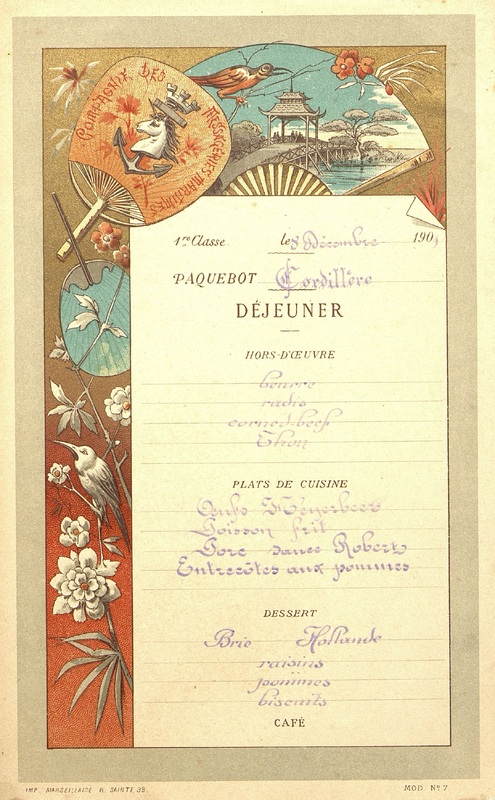 COMPAGNIE DES MESSAGERIES MARITIMES
1re Classe le 8 Décembre 1903
PAQUEBOT Cordillère
DÉJEUNER
HORS-D'ŒUVRE
beurre
radis
corned-beef
Thon
PLATS DE CUISINE
Œufs Meyerbeer
Poisson frit
Porc sauce Robert
Entrecôtes aux pommes
DESSERT
Brie Hollande
raisins
pommes
biscuits
CAFÉ
IMP. MARSEILLAISE R. SAINTE 39.
MOD. No 7